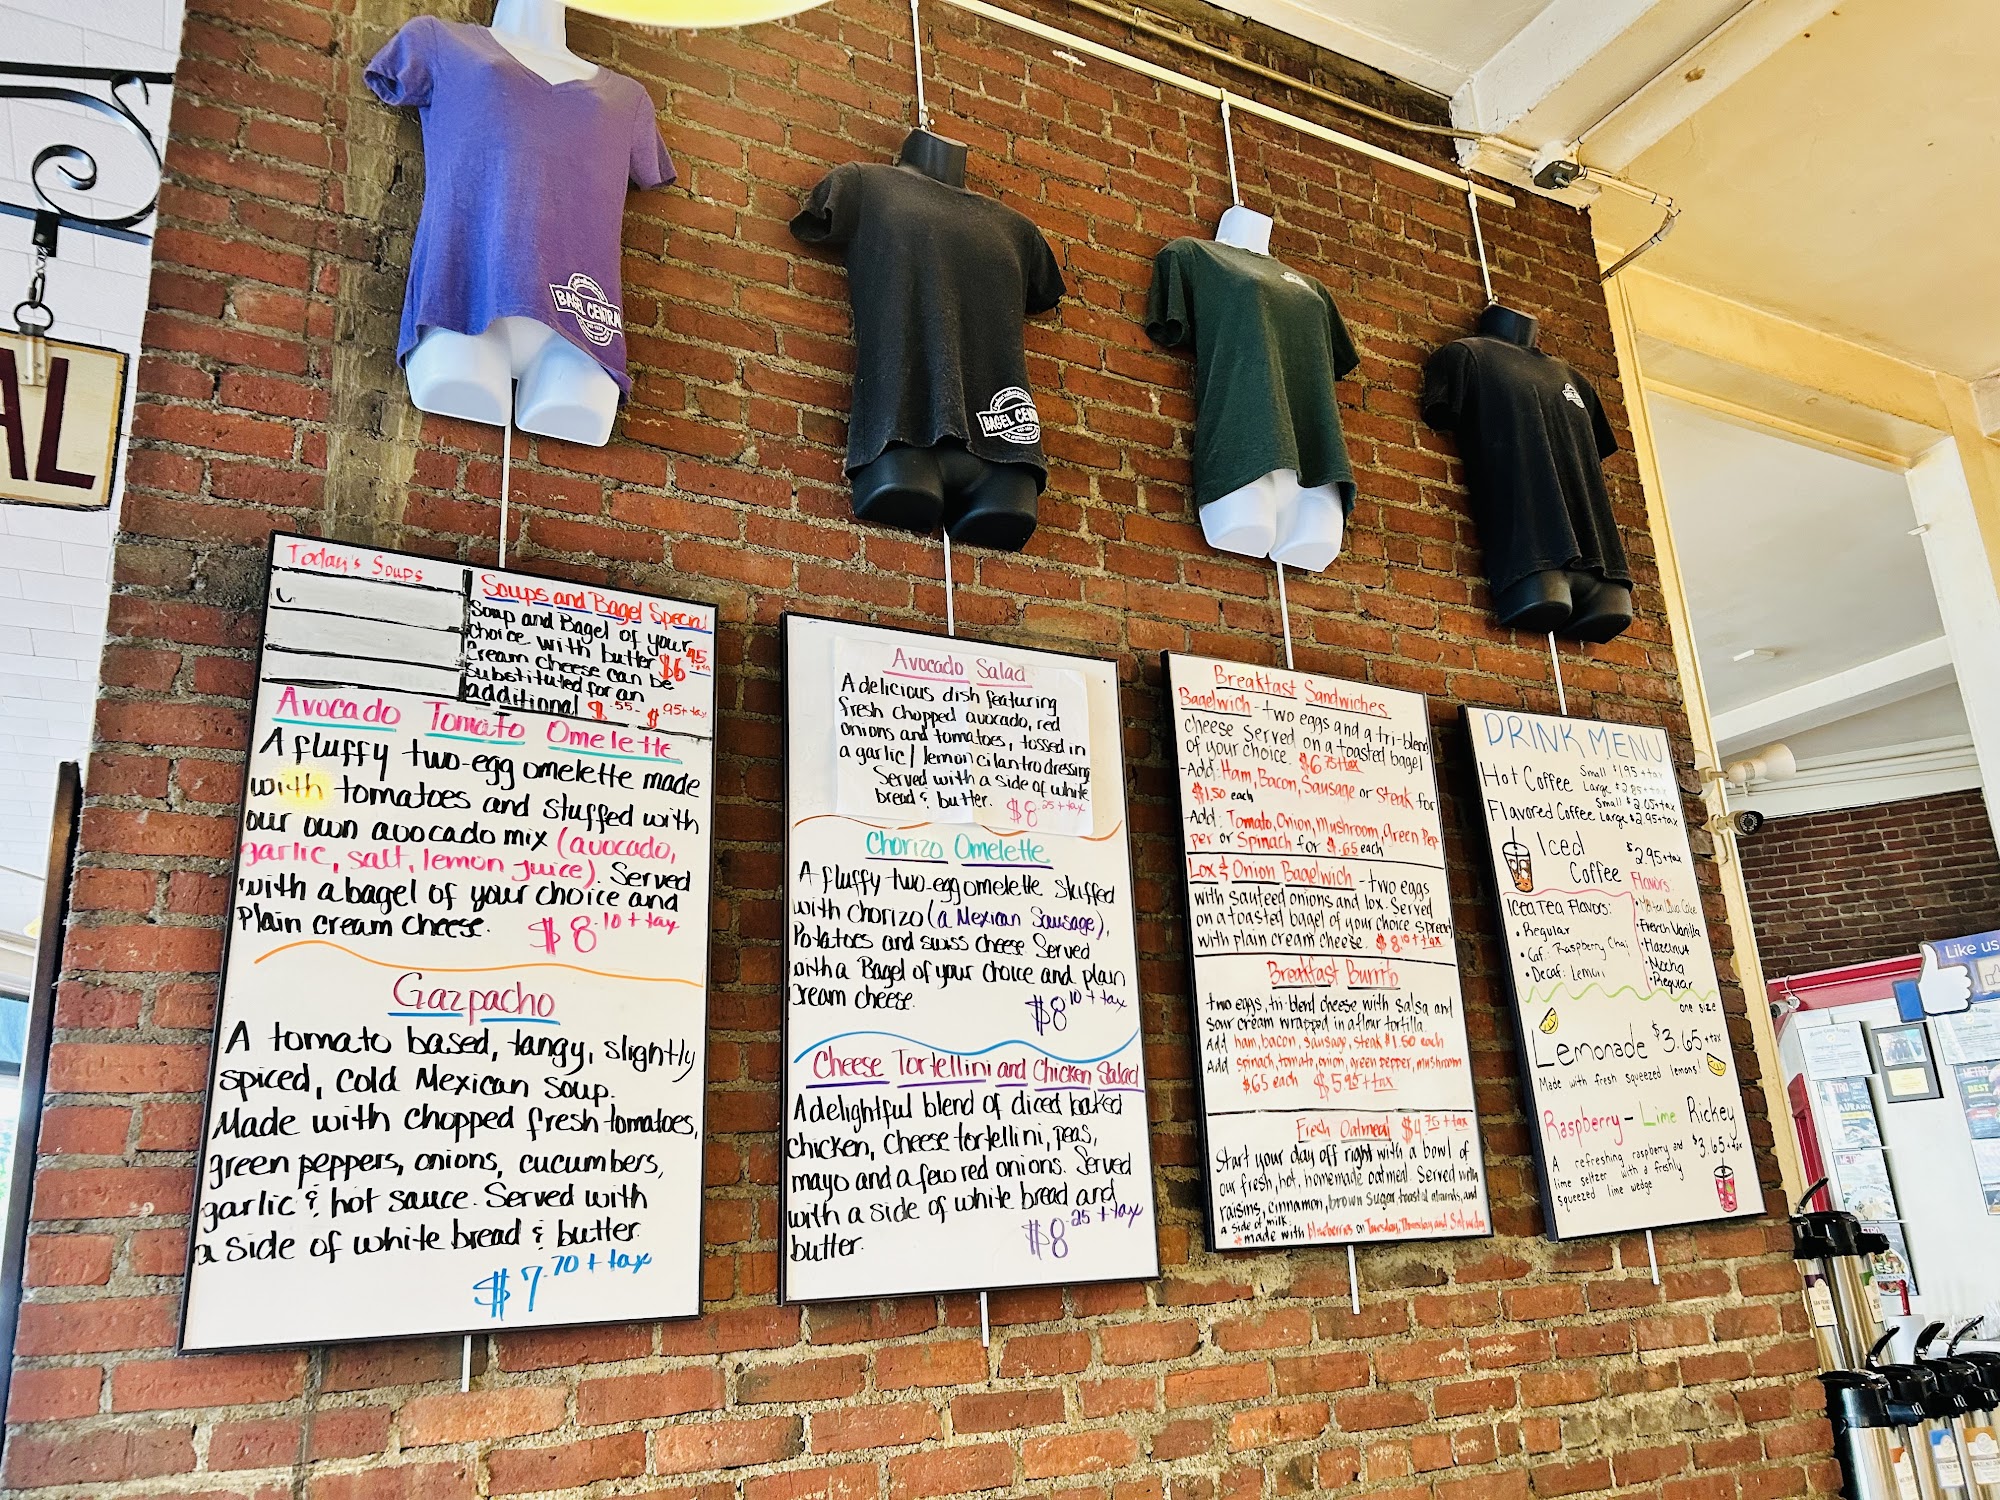 BAGEL CENTRAL
BAGEL CENT
AL
Today's Soups
Soups and Bagel Special
Soup and Bagel of your
choice with butter $6.95
Cream cheese can be
substituted for an
additional $.55- $.95+tax
Avocado Tomato Omelette
A fluffy two-egg omelette made
with tomatoes and stuffed with
our own avocado mix (avocado,
garlic, salt, lemon juice). Served
with a bagel of your choice and
Plain cream cheese. $8.10 + tax
Gazpacho
A tomato based, tangy, slightly
spiced, cold Mexican soup.
Made with chopped fresh tomatoes,
green peppers, onions, cucumbers,
garlic & hot sauce. Served with
a side of white bread & butter.
$7.70 + tax
Avocado Salad
A delicious dish featuring
fresh chopped avocado, red
onions and tomatoes, tossed in
a garlic/lemon cilantro dressing
Served with a side of white
bread & butter. $8.25 + tax
Chorizo Omelette
A fluffy two-egg omelette stuffed
with chorizo (a Mexican Sausage),
Potatoes and swiss cheese. Served
with a Bagel of your choice and plain
cream cheese. $8.10 + tax
Cheese Tortellini and Chicken Salad
A delightful blend of diced baked
chicken, cheese tortellini, peas,
mayo and a few red onions. Served
with a side of white bread and
butter. $8.25 + tax
Breakfast Sandwiches
Bagelwich - two eggs and a tri-blend
cheese Served on a toasted bagel
of your choice. $6.75+tax
-Add: Ham, Bacon, Sausage or Steak for
$1.50 each
-Add: Tomato, Onion, Mushroom, Green Pep-
per or Spinach for $.65 each
Lox & Onion Bagelwich - two eggs
with sauteed onions and lox. Served
on a toasted bagel of your choice spread
with plain cream cheese. $8.10 + tax
Breakfast Burrito
two eggs, tri-blend cheese with salsa and
sour cream wrapped in a flour tortilla.
Add ham, bacon, sausage, steak $1.50 each
Add spinach, tomato, onion, green pepper, mushroom
$.65 each $5.95 + tax
Fresh Oatmeal $4.75 + tax
Start your day off right with a bowl of
our fresh, hot, homemade oatmeal. Served with
raisins, cinnamon, brown sugar, toasted almonds, and
a side of milk.
* made with blueberries on Tuesday, Thursday and Saturday
DRINK MENU
Hot Coffee Small $1.95 + tax
Large $2.85 + tax
Flavored Coffee Small $2.05+tax
Large $2.95+tax
Iced
Coffee $2.95+tax
Flavors:
Iced Tea Flavors:
• Regular
• Caf: Raspberry Chai
• Decaf: Lemon
• French Vanilla
• Hazelnut
• Mocha
• Regular
one size
Lemonade $3.65+tax
Made with fresh squeezed lemons!
Raspberry-Lime Rickey
A refreshing raspberry and $3.65+tax
lime seltzer with a freshly
squeezed lime wedge
Like us